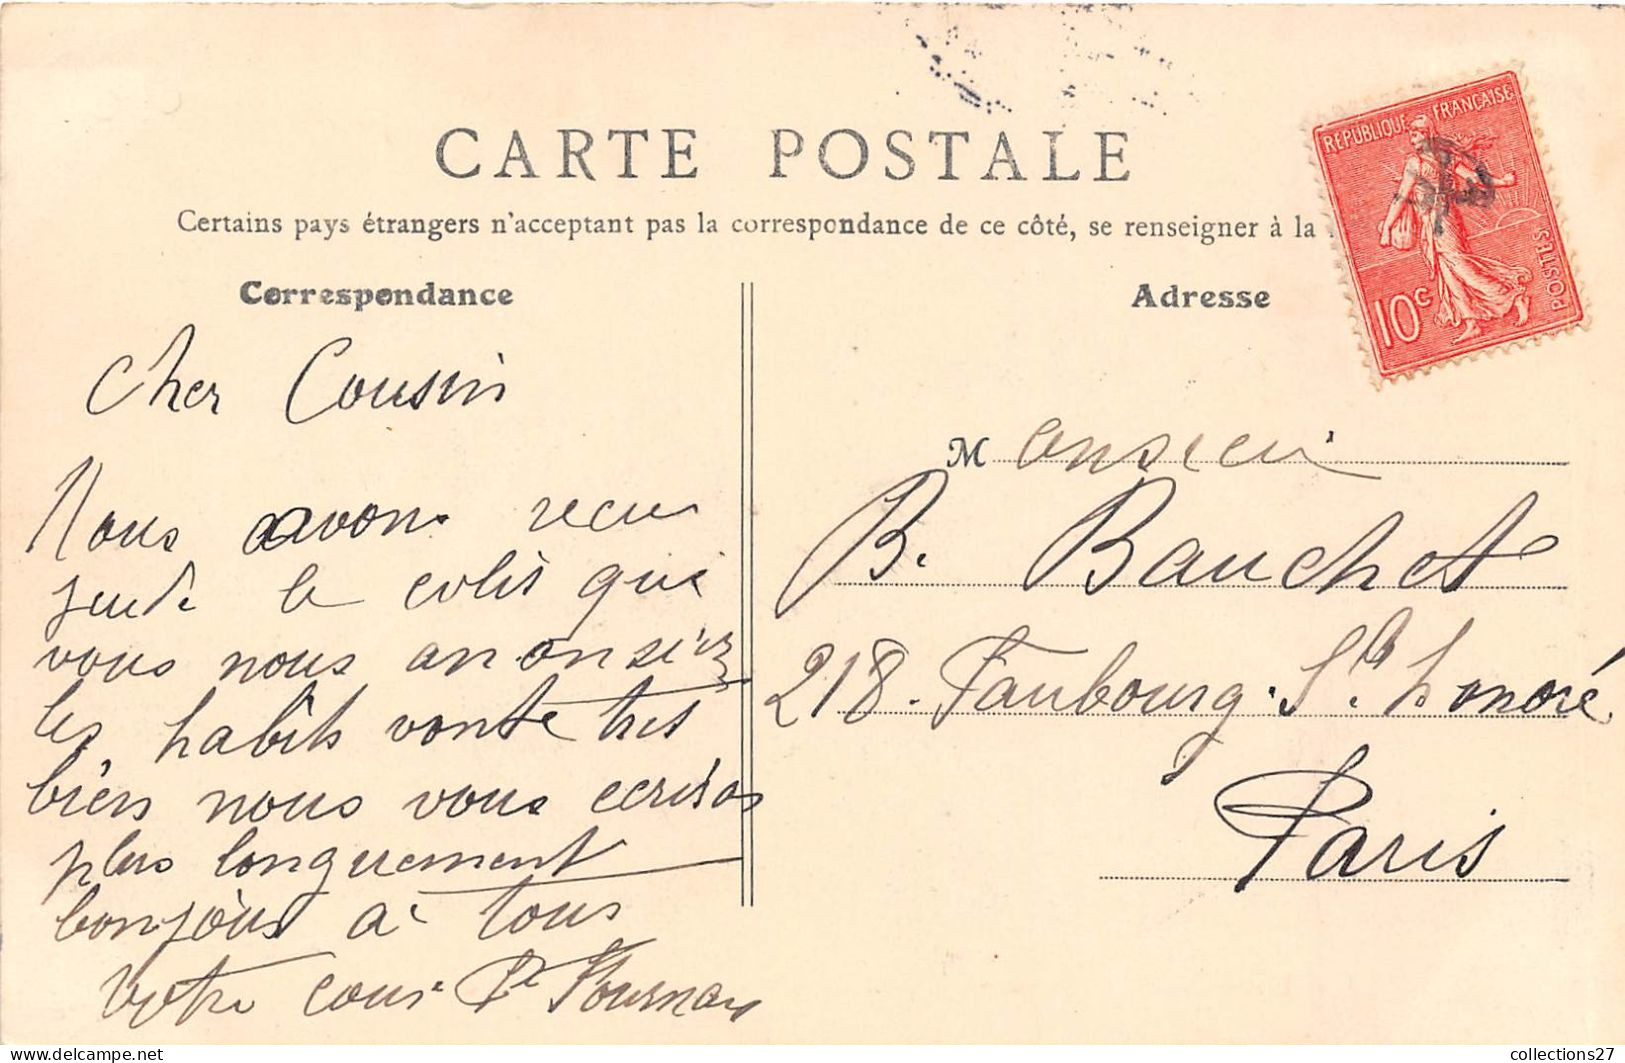 CARTE POSTALE
Certains pays étrangers n'acceptant pas la correspondance de ce côté, se renseigner à la
Correspondance
Adresse
REPUBLIQUE FRANÇAISE
POSTES
10c
Cher Cousin
Nous avons recu
jeudi le colis que
vous nous anonsiez
les habits vonte tres
bien nous vous ecrison
plus longuement
bonjour a tous
Votre cousi
Monsieur
B. Bauchet
218. Faubourg. St honoré
Paris
collections27